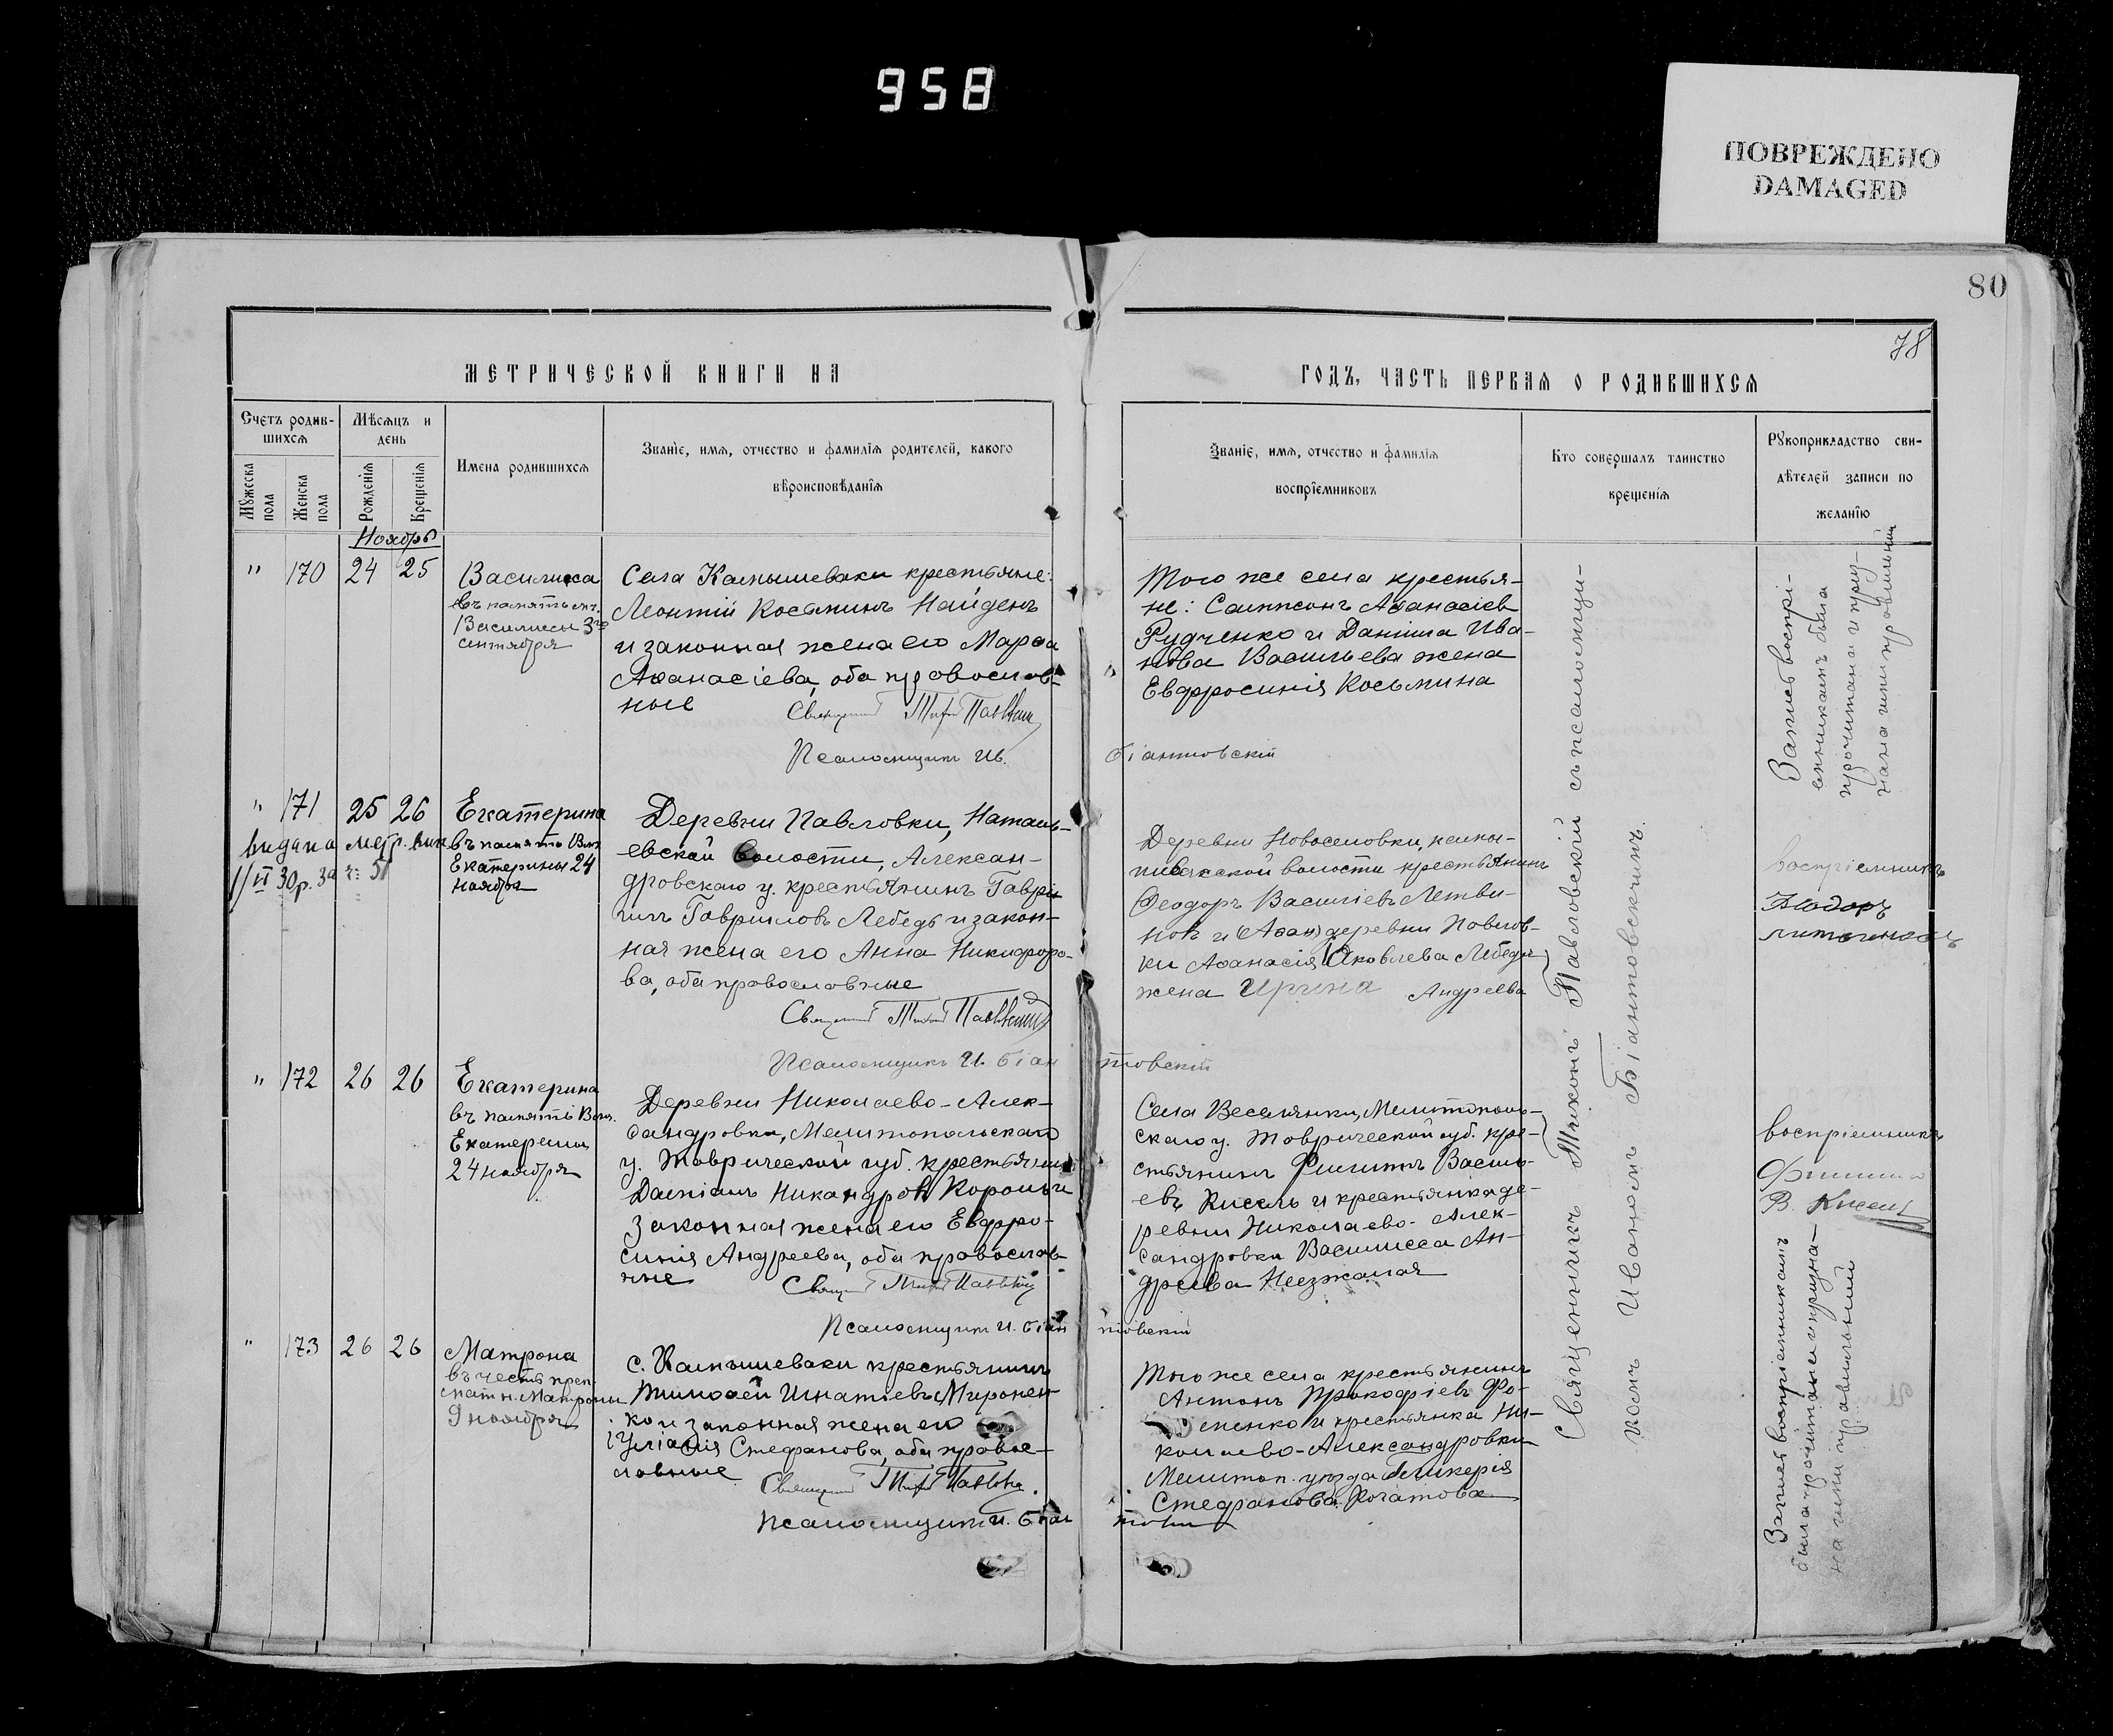 958
ПОВРЕЖДЕНО
DAMAGED
80
78
МЕТРИЧЕСКОЙ КНИГИ НА
ГОДЪ, ЧАСТЬ ПЕРВАЯ О РОДИВШИХСЯ
Счетъ родив-
шихся
Мужеска
пола
Женска
пола
Мѣсяцъ и
день
Рожденія
Крещенія
Имена родившихся
Званіе, имя, отчество и фамилія родителей, какого
вѣроисповѣданія
Званіе, имя, отчество и фамилія
воспріемниковъ
Кто совершалъ таинство
крещенія
Рукоприкладство сви-
дѣтелей записи по
желанію
Ноябрь
" 170 24 25
Василисса
въ память мч.
Василиссы 3го
сентября
Села Камышеваки крестьяне:
Леонтій Косьминъ Найденъ
и законная жена его Марѳа
Аѳанасіева, оба православ-
ные
Священникъ Тихонъ Павловскій
Псаломщикъ Ив. Біантовскій
Того же села крестья-
не: Сампсонъ Аѳанасіевъ
Рудченко и Даніила Ива-
нова Васильева жена
Евфросинія Косьмина
Запись воспрі-
емникамъ была
прочитана и приз-
нана ими правильной
" 171 25 26
видана метр. вип.
1/II 30р. за ч: 51
Екатерина
въ память Вмч.
Екатерины 24
ноября
Деревни Павловки, Наталь-
евской волости, Алексан-
дровскаго у. крестьянинъ Гаврі-
илъ Гавриловъ Лебедь и закон-
ная жена его Анна Никифоро-
ва, оба православные
Священникъ Тихонъ Павловскій
Псаломщикъ И. Біантовскій
Деревни Новоселовки,
волости крестьянинъ
Ѳеодоръ Василіевъ Летви-
нов и деревни Павлов-
ки Аѳанасія Яковлева Лебедя
жена Ирина Андреева
воспріемникъ
Ѳіодоръ
" 172 26 26
Екатерина
въ память Вмч.
Екатерины
24 ноября
Деревни Николаево-Алек-
сандровки, Мелитопольскаго
у. Таврической губ. крестьянинъ
Даміанъ Никандров Король и
законная жена его Евфро-
синія Андреева, оба православ-
ные
Священникъ Тихонъ Павловскій
Псаломщикъ И. Біантовскій
Села Веселянки, Мелитополь-
скаго у. Таврической губ. кре-
стьянинъ Филиппъ Василь-
евъ Кисель и крестьянка де-
ревни Николаево-Алек-
сандровки Василисса Ан-
дреева Неезжалая
воспріемникъ
Филиппъ
В. Кисель
" 173 26 26
Матрона
въ честь преп.
Матроны
9 ноября
с. Камышеваки крестьянинъ
Тимоѳей Игнатіевъ Миронен-
ко и законная жена его
Іуліанія Стефанова, оба право-
славные
Священникъ Тихонъ Павловскій
Псаломщикъ И. Біантовскій
Того же села крестьянинъ
Антонъ Прокофіевъ Фо-
менко и крестьянка Ни-
колаево-Александровки
Мелитоп. уѣзда Гликерія
Стефанова
Запись воспріемникамъ
была прочитана и призна-
на ими правильной
Священникъ Тихонъ Павловскій съ псаломщи-
комъ Иваномъ Біантовскимъ.